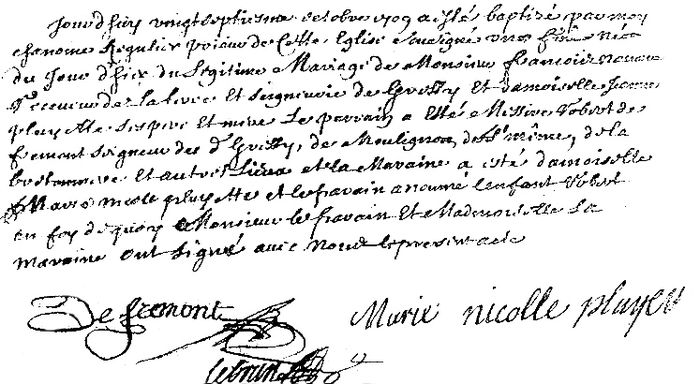 Jourd'huy vingt septiesme octobre 1709 a esté baptizé par moy
chanoine Regulier prieur de cette Eglise soussigné un fils né
du jour d'hier du legitime Mariage de Monsieur francois
Receveur de la terre et seigneurie de Grisy Et damoiselle Jeanne
pluyette ses pere et mere Le parrain a Esté Messire Robert de
fremont seigneur des dt Grissy, de Moulignon, de la
Et autres lieux et la Maraine a esté damoiselle
Marie nicole pluyette et le parain a nommé lenfant Robert
En foy de quoy Monsieur le parain Et Mademoiselle La
maraine ont signé avec nous le present acte
De fremont Marie nicolle pluyet
lebrun